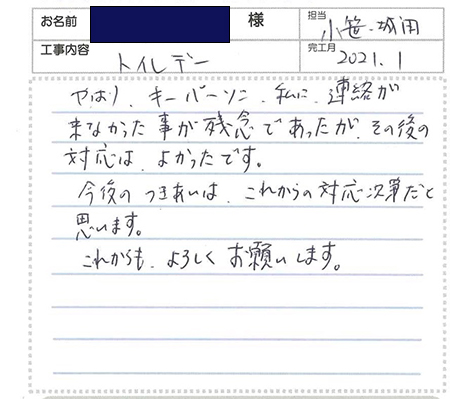 お名前 様 担当 小笹・城田
工事内容 トイレデー 完工月 2021.1
やはり、キーパーソン、私に、連絡が
来なかった事が残念であったが、その後の
対応は、よかったです。
今後のつきあいは、これからの対応次第だと
思います。
これからも、よろしくお願いします。